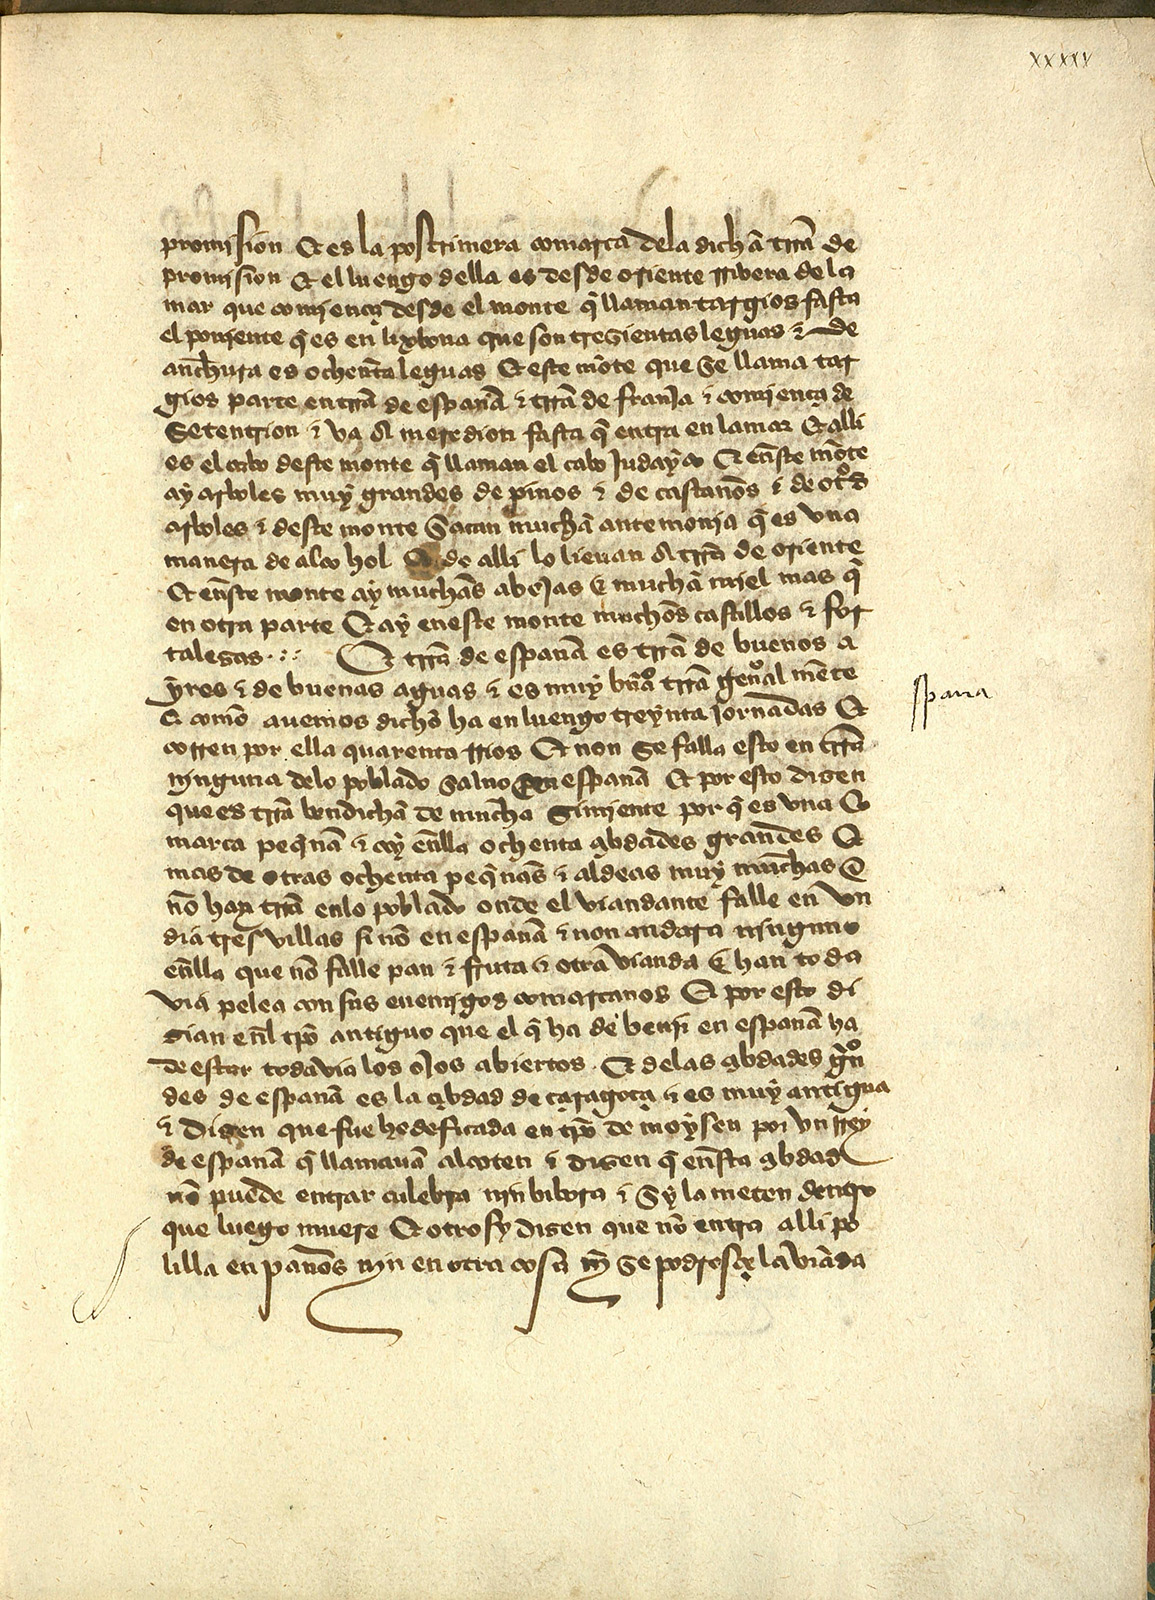 xxxxv
promission Et es la postrimera comarca dela dicha trra de
promision Et el luengo della es desde oriente rribera de la
mar que comiença desde el monte q̃ llaman targios fasta
el poniente q̃ es en lixbona que son tresientas leguas & de
anchura es ochenta leguas Et este mõte que se llama tar
gios parte entrra de españa & trra de françia & comiença de
Setentrion & va A meredion fasta q̃ entra en la mar Et alli
es el cabo deste monte q̃ llaman el cabo Judayco Et enste mõte
ay arboles muy grandes de pinos & de castanos & de otros
arboles & deste monte Sacan mucha antemonia q̃ es vna
manera de alcohol Et de alli lo lieuan A trra de oriente
Et enste monte ay muchas abejas & mucha miel mas q̃
en otra parte Et ay eneste monte muchos castillos & for
talesas Et trra de españa es trra de buenos a
yres & de buenas aguas & es muy bña trra general mẽte
& como auemos dicho ha en luengo treynta Jornadas Et
corren por ella quarenta rrios Et non se falla esto en trra
ninguna delo poblado saluo en españa Et por esto disen
que es trra bendicha de mucha simiente por q̃ es vna co
marca peq̃na & ay enlla ochenta çibdades grandes Et
mas de otras ochenta peq̃nas & aldeas muy muchas &
nõ hay trra enlo poblado onde el viandante falle en vn
dia tres villas si nõ en españa & non andara ninguno
enlla que nõ falle pan & fruta & otra vianda & han toda
via pelea con sus enemigos comarcanos Et por esto di
sian enl tpo antiguo que el q̃ ha de benir en españa ha
de estar todavia los ojos abiertos Et delas çibdades grñ
des de españa es la çibdad de çaragoça & es muy antigua
& Disen que fue hedeficada en tpo de moysen por vn rrey
de españa q̃ llamauã alcoten & disen q̃ ensta çibdad
nõ puede entrar culebra nin bibora & sy la meten dentro
que luego muere Et otrosy disen que nõ entra alli po
lilla en paños nin en otra cosa nĩ se podresçe la viãda
spana